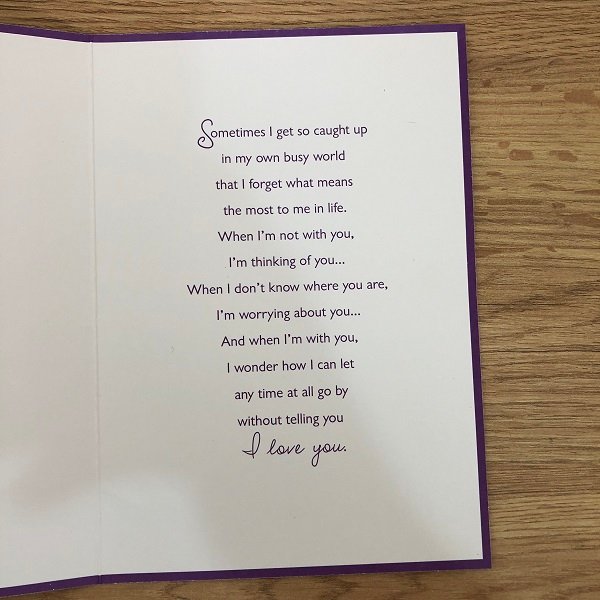 Sometimes I get so caught up
in my own busy world
that I forget what means
the most to me in life.
When I'm not with you,
I'm thinking of you...
When I don't know where you are,
I'm worrying about you...
And when I'm with you,
I wonder how I can let
any time at all go by
without telling you
I love you.